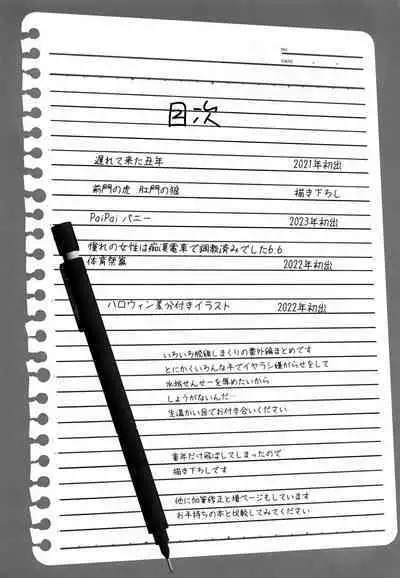 NO.
DATE
目次
遅れて来た丑年 2021年初出
前門の虎 肛門の狼 描き下ろし
PaiPai バニー 2023年初出
憧れの女性は痴漢電車で調教済みでした6.6
体育祭篇 2022年初出
ハロウィン差分付きイラスト 2022年初出
いろいろ脱線しまくりの番外編まとめです
とにかくいろんな手でイヤラシ嫌がらせをして
水城せんせーを辱めたいから
しょうがないんだ…
生温かい目でお付き合いください
寅年だけ飛ばしてしまったので
描き下ろしです
他に加筆修正と増ページもしています
お手持ちの本と比較してみてください